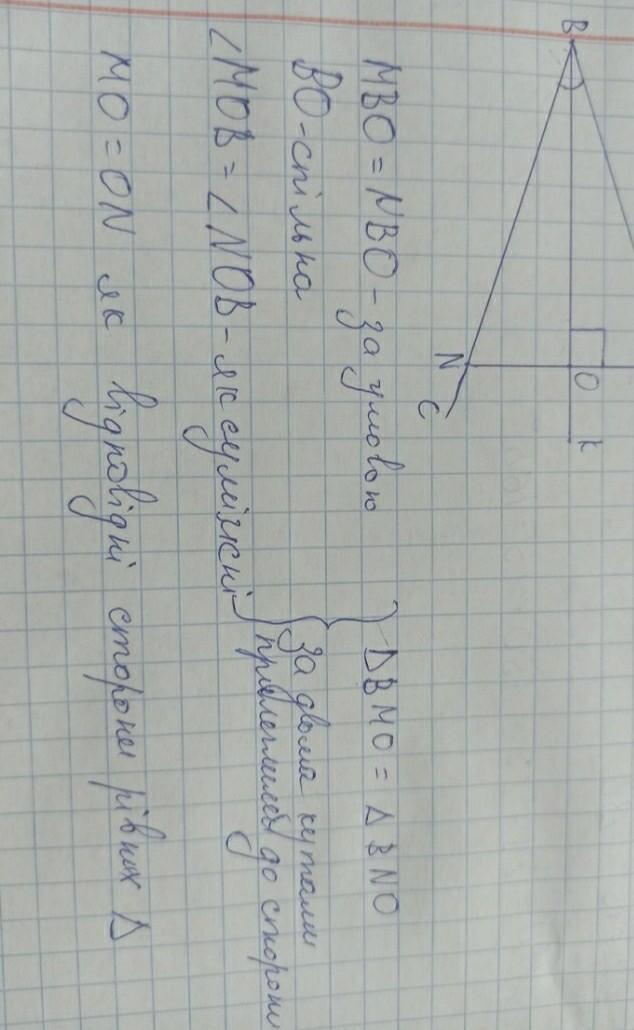 B
O
K
N
C
MBO = NBO - за умовою
BO - спільна
∠MOB = ∠NOB - як суміжні
ΔBMO = ΔBNO
за двома кутами
прилеглими до сторони
MO = ON як відповідні сторони рівних Δ